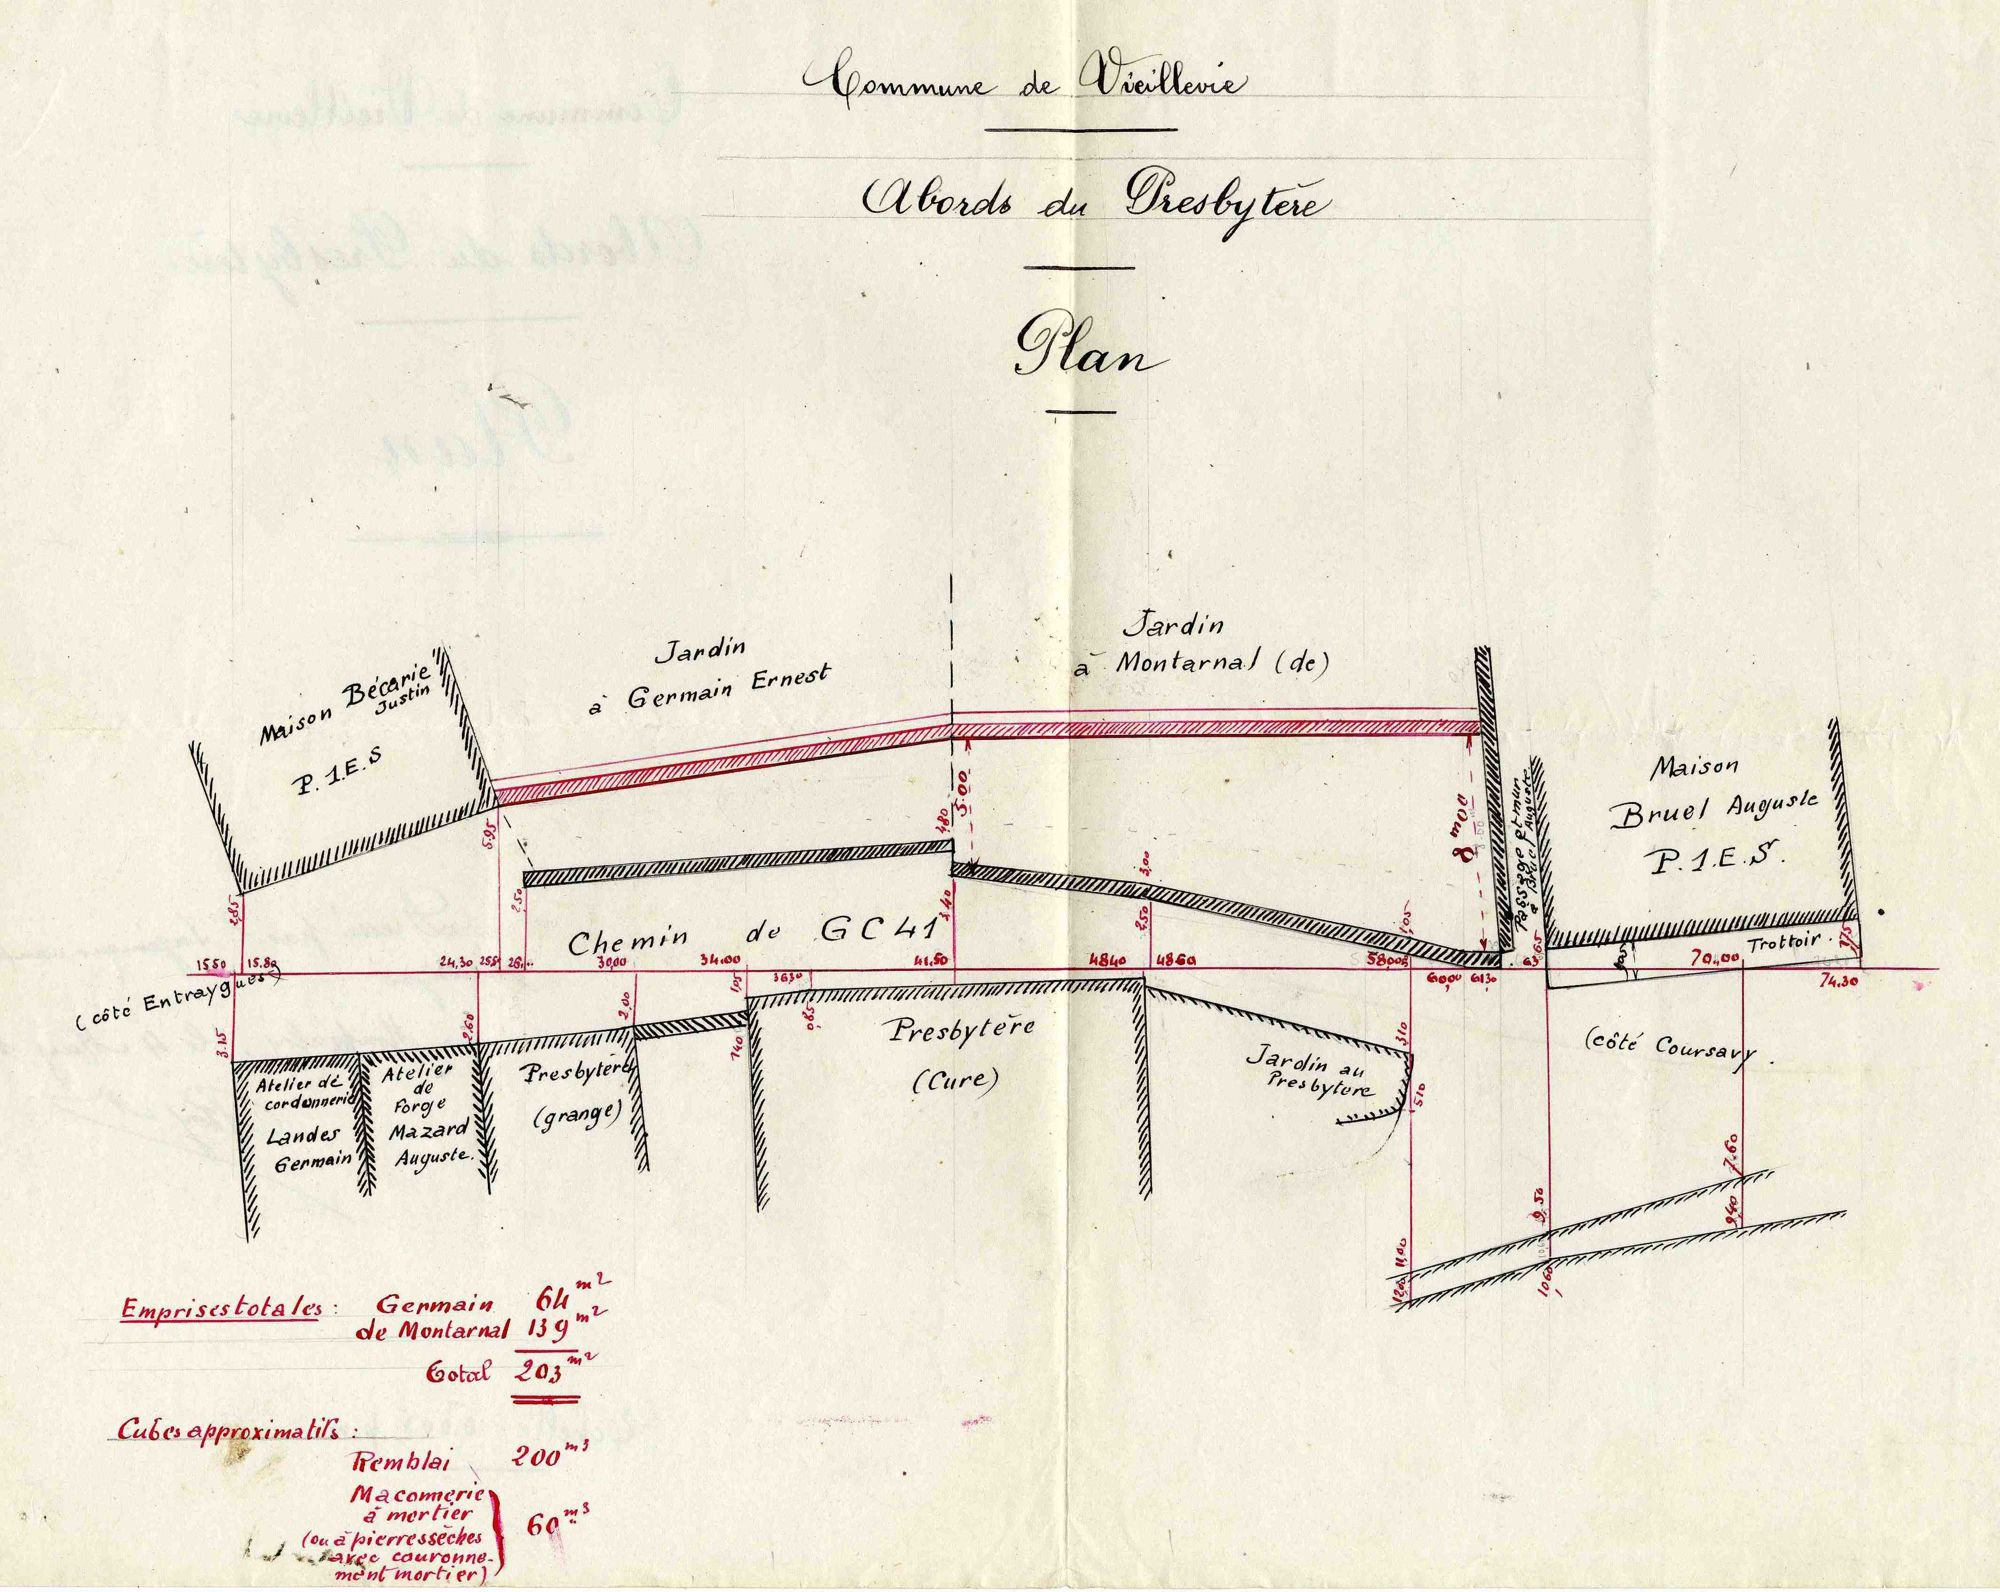 Commune de Vieillevie
Abords du Presbytère
Plan
Jardin
à Germain Ernest
Jardin
à Montarnal (de)
Maison Bécarie
Justin
P. 1.E.S
Maison
Bruel Auguste
P. 1.E.S.
Passage et mur
à Bruel Auguste
5.95
2.85
2.50
4.80
5.00
3.40
3,00
2.50
1,05
8 m00
Chemin de GC 41
Trottoir.
15.50 15.80 24,30 25.5 30,00 34.00 36.30 41,50 48.40 48.60 58,00 60,00 61.30 70.00 74.30
(côté Entraygues)
(côté Coursavy.
3.15
2.60
2,00
1.05
1.40
0.85
3.10
5.10
Atelier de
cordonnerie
Landes
Germain
Atelier
de
Forge
Mazard
Auguste.
Presbytère
(grange)
Presbytère
(Cure)
Jardin au
Presbytère
7.60
9.40
9.50
10.60
11,00
12.00
Emprises totales : Germain 64 m2
de Montarnal 139 m2
Total 203 m2
Cubes approximatifs :
Remblai 200 m3
Maconnerie
à mortier
(ou à pierres sèches
avec couronne-
ment mortier) 60 m3